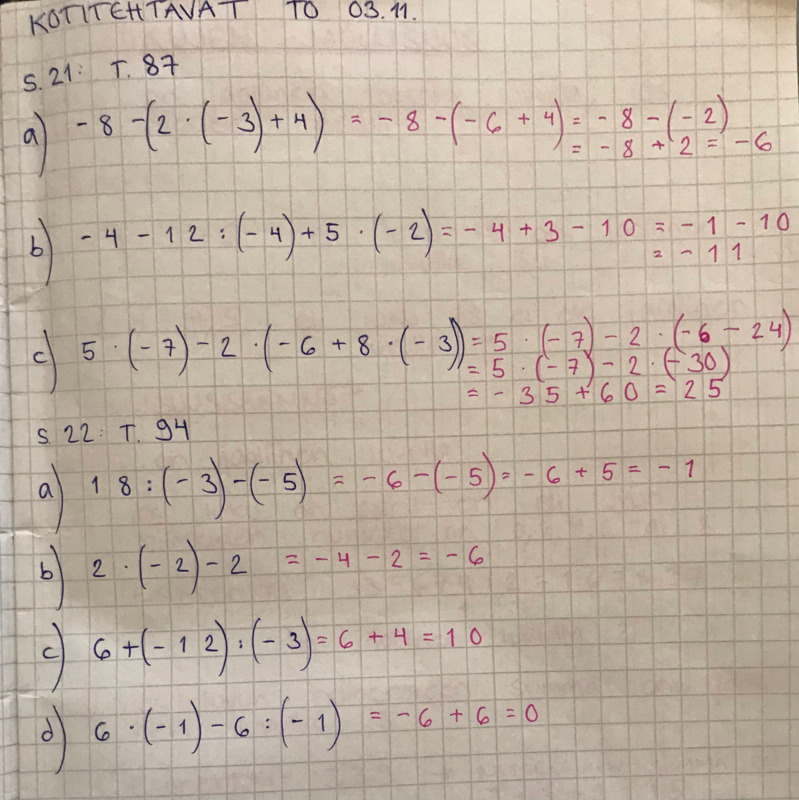 KOTITEHTAVAT TO 03.11.
S. 21: T. 87
a) -8 -(2 · (-3) + 4) = -8 -(-6 + 4) = -8 -(-2)
= -8 + 2 = -6
b) -4 - 12 : (-4) + 5 · (-2) = -4 + 3 - 10 = -1 - 10
= -11
c) 5 · (-7) - 2 · (-6 + 8 · (-3)) = 5 · (-7) - 2 · (-6 - 24)
= 5 · (-7) - 2 · (-30)
= -35 + 60 = 25
S. 22: T. 94
a) 18 : (-3) -(-5) = -6 -(-5) = -6 + 5 = -1
b) 2 · (-2) - 2 = -4 - 2 = -6
c) 6 + (-12) : (-3) = 6 + 4 = 10
d) 6 · (-1) - 6 : (-1) = -6 + 6 = 0